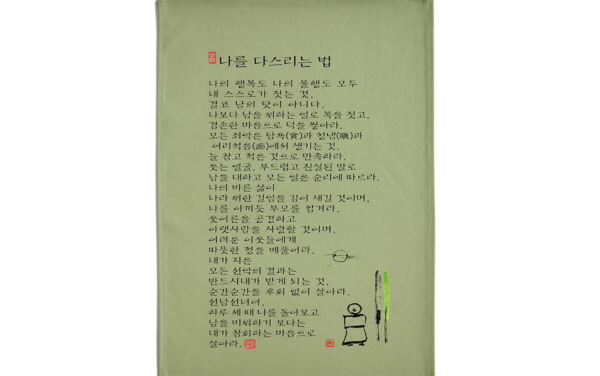 나를 다스리는 법
나의 행복도 나의 불행도 모두
내 스스로가 짓는 것,
결코 남의 탓이 아니다.
나보다 남을 위하는 일로 복을 짓고,
겸손한 마음으로 덕을 쌓아라.
모든 죄악은 탐욕(貪)과 성냄(瞋)과
어리석음(痴)에서 생기는 것.
늘 참고 적은 것으로 만족하라.
웃는 얼굴, 부드럽고 진실된 말로
남을 대하고 모든 일은 순리에 따르라.
나의 바른 삶이
나라 위한 길임을 깊이 새길 것이며,
나를 아끼듯 부모를 섬겨라.
웃어른을 공경하고
아랫사람을 사랑할 것이며,
어려운 이웃들에게
따뜻한 정을 베풀어라.
내가 지은
모든 선악의 결과는
반드시내가 받게 되는 것,
순간순간을 후회 없이 살아라.
선남선녀여,
하루 세 때 나를 돌아보고
남을 미워하기 보다는
내가 참회하는 마음으로
살아라.